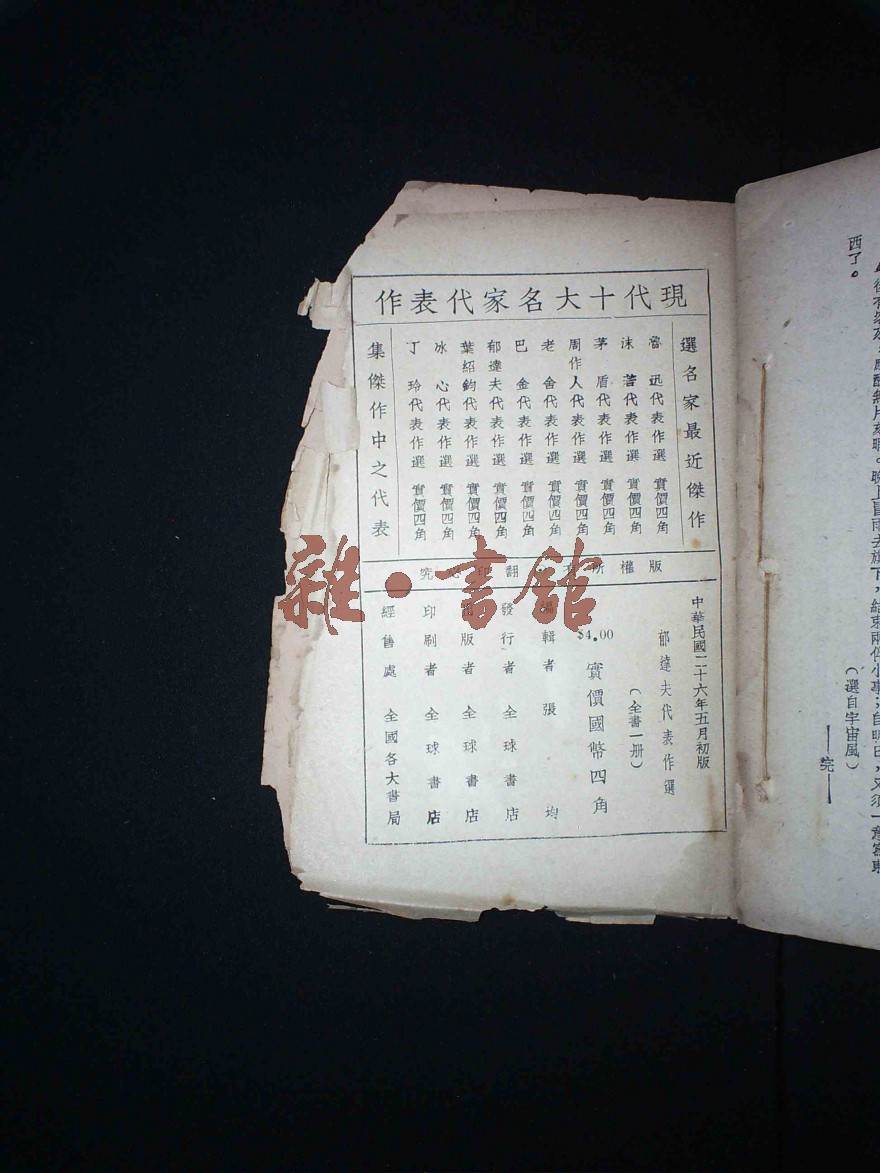 現代十大名家代表作
選名家最近傑作
魯迅代表作選 實價四角
沫若代表作選 實價四角
茅盾代表作選 實價四角
周作人代表作選 實價四角
老舍代表作選 實價四角
巴金代表作選 實價四角
郁達夫代表作選 實價四角
葉紹鈞代表作選 實價四角
冰心代表作選 實價四角
丁玲代表作選 實價四角
集傑作中之代表
版權所有 翻印必究
中華民國二十六年五月初版
郁達夫代表作選
(全書一册)
$4.00
實價國幣四角
編輯者 張均
發行者 全球書店
出版者 全球書店
印刷者 全球書店
經售處 全國各大書局
雜·書館
西了。
(選自宇宙風)
——完——